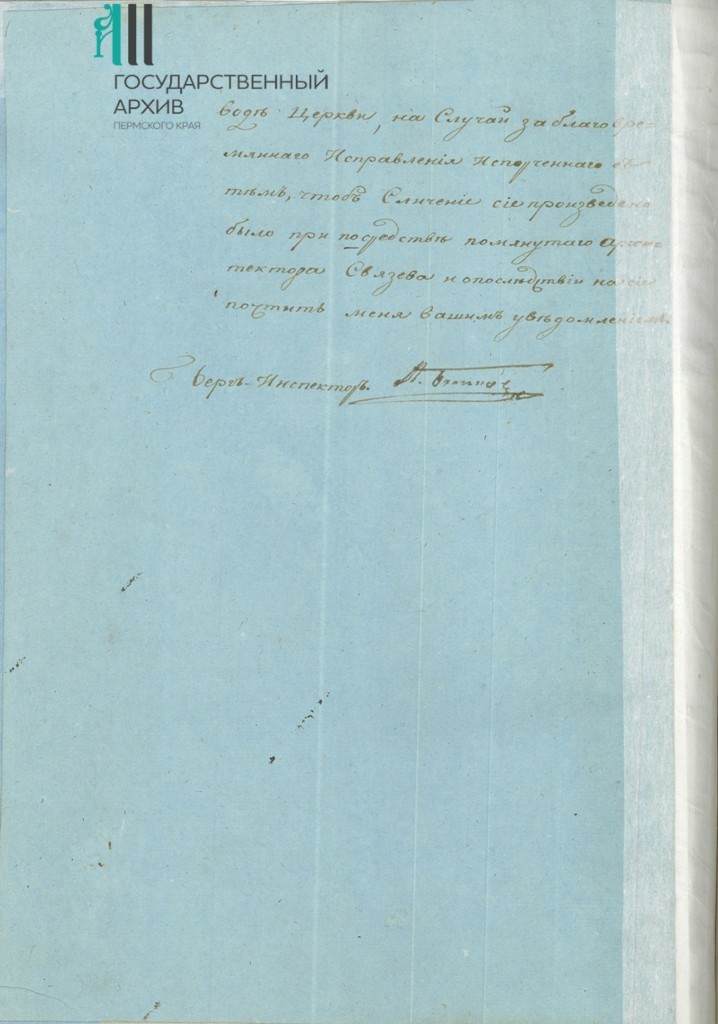 ГОСУДАРСТВЕННЫЙ
АРХИВ
ПЕРМСКОГО КРАЯ
водѣ Церкви, на Случай заблаговре-
мяннаго Исправленія Испорченнаго съ
тѣмъ, чтобъ Сличеніе сіе произведено
было при посредствѣ помянутаго Архи-
тектора Свіязева и опослѣдствіи на сіе
почтить меня вашимъ увѣдомленіемъ.
Бергъ-Инспекторъ